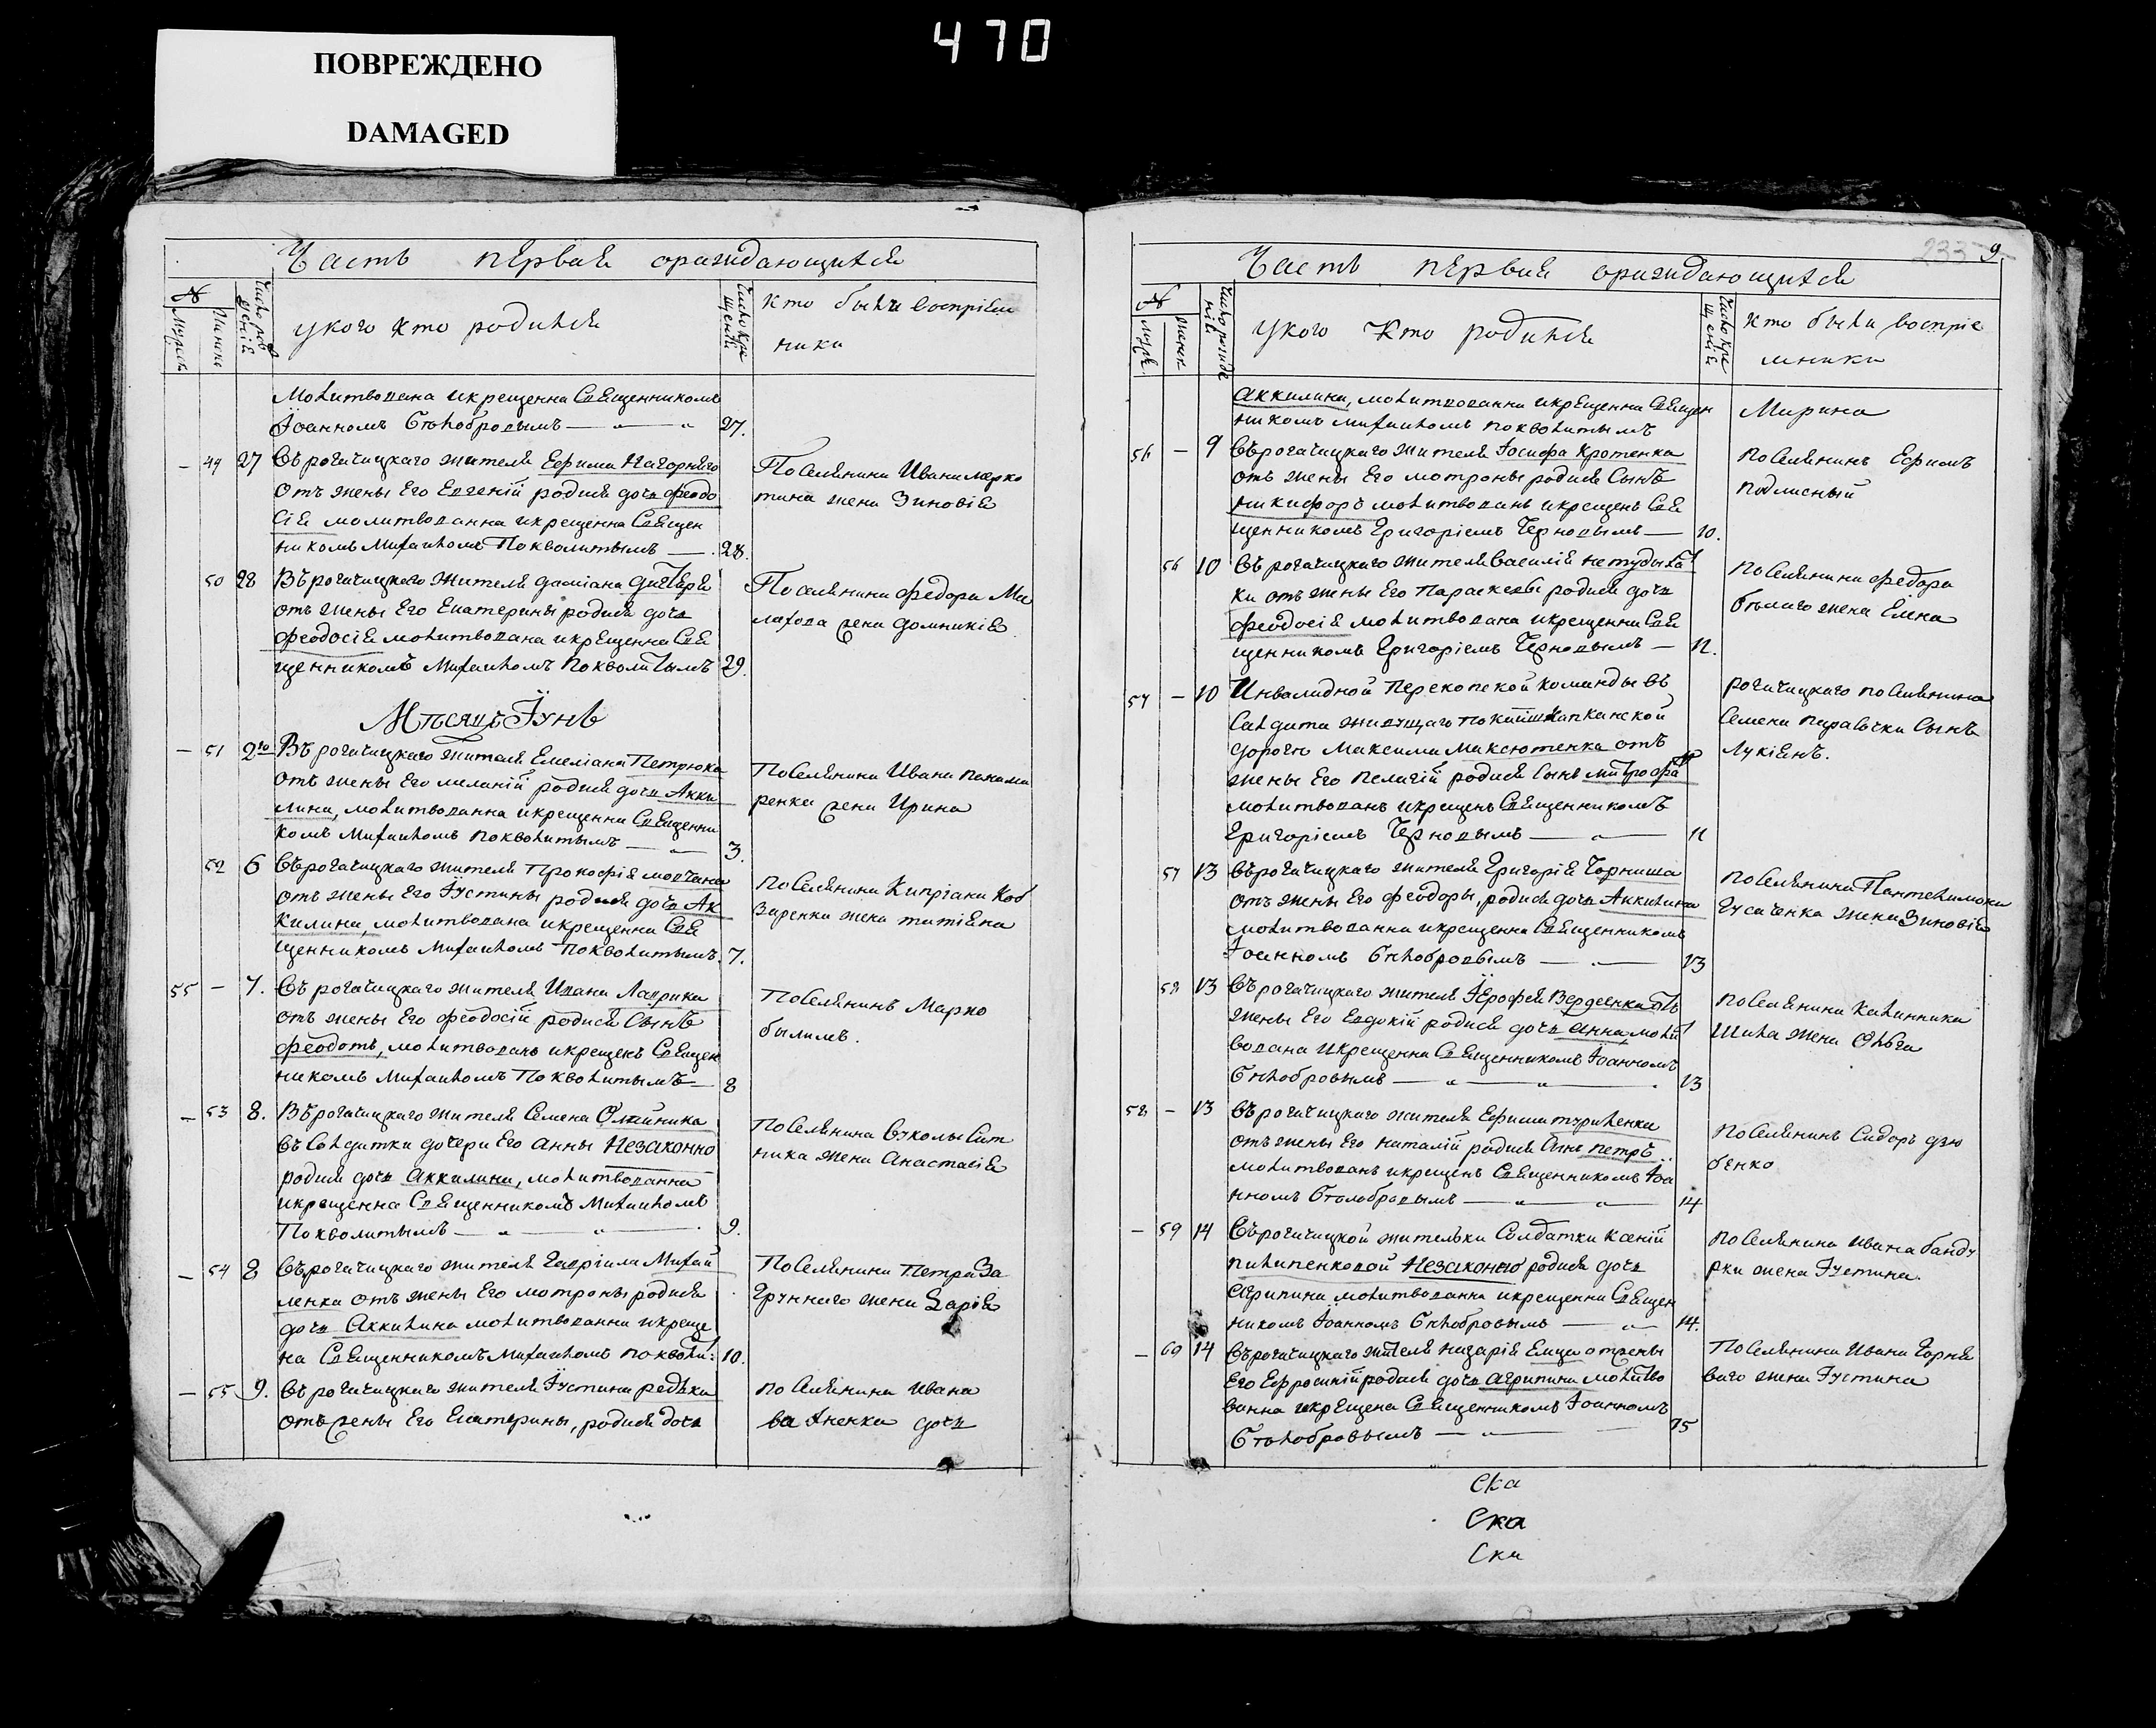 470
ПОВРЕЖДЕНО
DAMAGED
Часть первая ораждающихся
№
Мужеск
Женск
Число рож
дений
укого кто родился
Число кре
щений
кто были воспрiем
ники
Молитвована икрещенна Священникомъ
Їоанномъ Бѣлобровымъ — „ — „ 27.
— 49 27 Въ рогачицкаго жителя Ефима Нагорняго
отъ жены Его Евгенiй родися дочь феодо
сiя молитвованна икрещенна Священ
никомъ Михаиломъ Поквалитымъ — 28.
Поселянина Ивана марко
тина жена Зиновiя
50 28 Въ рогачицкаго жителя дамiана дигтяря
отъ жены Его Екатерины родися дочь
феодосiя молитвована икрещенна Свя
щенникомъ Михаиломъ Поквалитымъ 29.
Поселянина федора Ма
лахова жена домникiя
Мѣсяцъ Їунь
— 51 2го Въ рогачицкаго жителя Емелiана Петрюка
отъ жены Его меланiй родися дочь Акки
лина, молитвованна икрещенна Священни
комъ Михаиломъ Поквалитымъ — „ — 3.
Поселянина Ивана понама
ренка жена Ирина
52 6 Въ рогачицкаго жителя Прокофiя мовчана
отъ жены Его Їустины родися дочь Ак
килина, молитвована икрещенна Свя
щенникомъ Михаиломъ Поквалитымъ. 7.
Поселянина Кипрiана Коб
заренка жена татiяна
55 — 7. Въ рогачицкаго жителя Ивана Лаврика
отъ жены Его феодосiй родися Сынъ
феодотъ, молитвованъ икрещенъ Священ
никомъ Михаиломъ Поквалитымъ — 8
Поселянинъ Марко
былимъ.
— 53 8. Въ рогачицкаго жителя Семена Олейника
въ Солдатки дочери Его Анны Незаконно
родися дочь Аккилина, молитвованна
икрещенна Священникомъ Михаиломъ
Поквалитымъ — „ — „ — 9.
Поселянина Вуколы Сит
ника жена Анастасiя
— 54 8 Въ рогачицкаго жителя Гаврiила Михай
ленка отъ жены Его мотроны родися
дочь Аккилина молитвованна икреще
на Священникомъ Михаиломъ поквали: 10.
Поселянина Петра За
грунняго жена Дарiя
— 55 9. Въ рогачицкаго жителя Їустина редька
отъ жены Его Екатерины, родися дочь
поселянина Ивана
дочь
9
Часть первая ораждающихся
№
Муже.
Женск
Число рожде
нiя
укого кто родился
Число кре
щенiй
Кто были воспрiе
мники
Аккилина, молитвованна икрещенна Священ
никомъ Михаиломъ поквалитымъ
Марина
56 — 9 Въ рогачицкаго жителя Їосифа Кротенка
отъ жены Его мотроны родися Сынъ
никифоръ молитвованъ икрещенъ Свя
щенникомъ Григорiемъ Черновымъ — 10.
Поселянинъ Ефимъ
подлисный
56 10 Въ рогачицкаго жителя Василiя нетудыхат
ки отъ жены Его Параскевы родися дочь
феодосiя молитвована икрещенна Свя
щенникомъ Григорiемъ Черновымъ — 12.
Поселянина федора
бѣлаго жена Елена
57 — 10 Инвалидной Перекопской команды въ
Салдата живущаго
дороги Максима Максютенка отъ
жены Его Пелагiй родися Сынъ митрофа
молитвованъ икрещенъ Священникомъ
Григорiемъ Черновымъ — „ — 11
рогачицкаго поселянина
Семена Сынъ
Лукiянъ.
57 13 Въ рогачицкаго жителя Григорiя Чорниша
отъ жены Его феодоры, родися дочь Аккилина
молитвованна икрещенна Священникомъ
Їоанномъ Бѣлобровымъ — „ — 13
поселянина Пантелимона
Гусаченка жена Зиновiя
58 13 Въ рогачицкаго жителя Їерофея Вердеенка отъ
жены Его Евдокiй родися дочь Анна, молит
вована икрещенна Священникомъ Їоанномъ
Бѣлобровымъ — „ — „ — 13
поселянина Калинника
Шила жена Ольга
58 — 13 Въ рогачицкаго жителя Ефима туриленка
отъ жены Его наталiй родися Сынъ петръ
молитвованъ икрещенъ Священникомъ Їоа
нномъ Бѣлобровымъ — „ — „ 14
Поселянинъ Сидоръ дзю
бенко
— 59 14 Въ рогачицкой жительки Солдатки Ксенiй
пилипенковой Незаконно родися дочь
Агрипина молитвованна икрещенна Священ
никомъ Їоанномъ Бѣлобровымъ — „ — 14.
поселянина Ивана банду
рки жена Їустина.
— 60 14 Въ рогачицкаго жителя назарiя Емца отжены
Его Ефросинiй родися дочь агрипина молитво
ванна икрещена Священникомъ Їоанномъ
Бѣлобровымъ — „ — 15
Поселянина Ивана Чорня
ваго жена Їустина
Ска
Ска
Ска